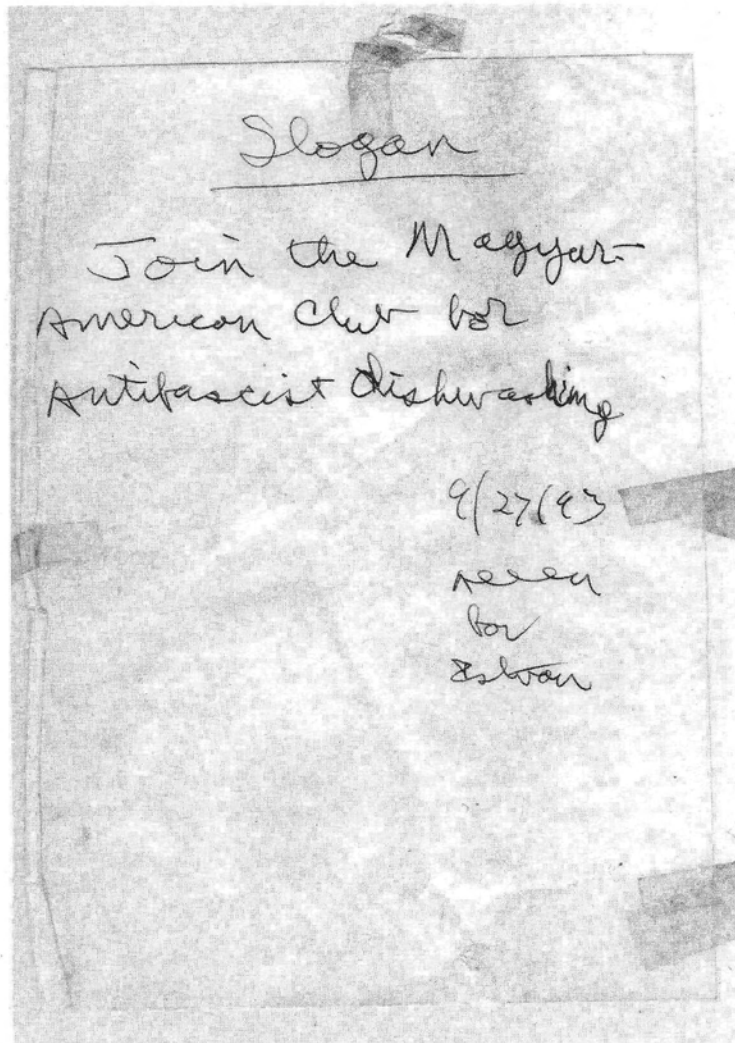 Slogan
Join the Magyar-
American Club for
Antifascist Dishwashing
9/27/93
Allen
for
Istvan